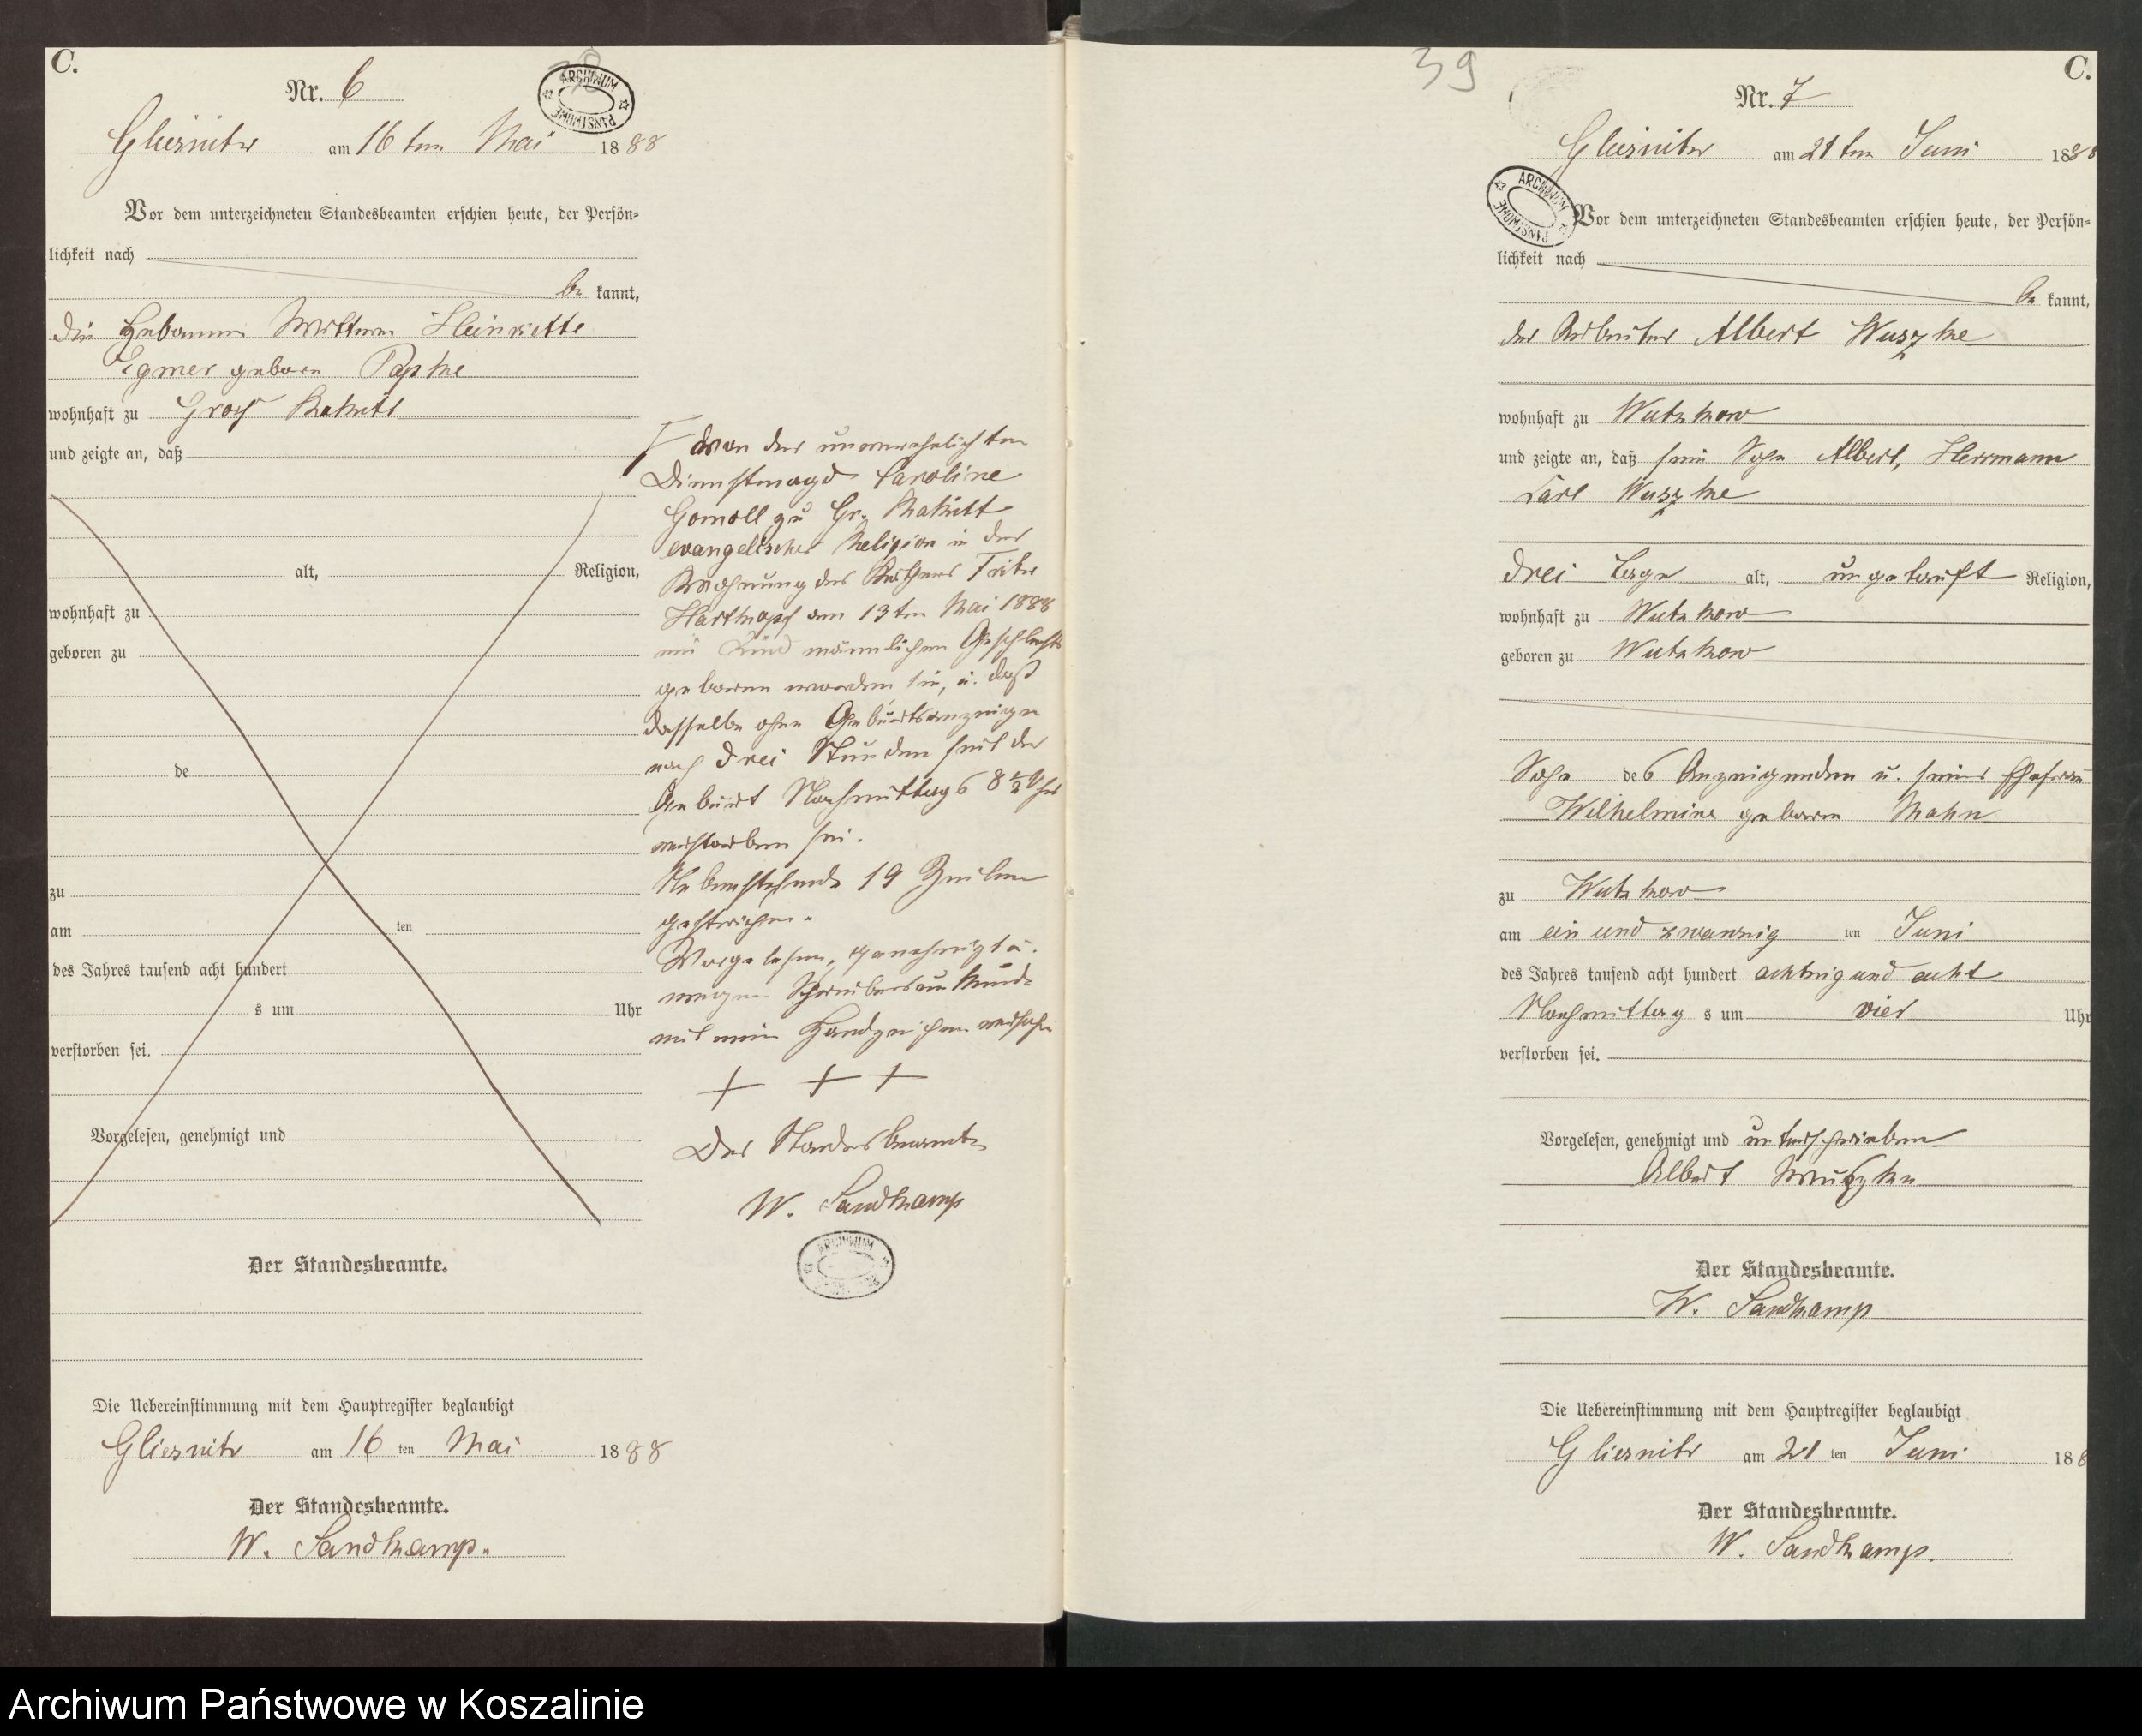 C.
Nr. 6
38
ARCHIWUM PAŃSTWOWE
Gliesnitz am 16ten Mai 1888
Vor dem unterzeichneten Standesbeamten erschien heute, der Persön-
lichkeit nach
be kannt,
die Hebamme Wittwe Heinriette
geborn Papke
wohnhaft zu Groß Rakitt
und zeigte an, daß
alt, Religion,
wohnhaft zu
geboren zu
de
zu
am ten
des Jahres tausend acht hundert
s um Uhr
verstorben sei.
Vorgelesen, genehmigt und
Der Standesbeamte.
Die Uebereinstimmung mit dem Hauptregister beglaubigt
Gliesnitz am 16 ten Mai 1888
Der Standesbeamte.
W. Sandkamp.
von der unverehelichten
Dienstmagd Caroline
Gomoll zu Gr. Rakitt
evangelischer Religion in der
Wohnung des Käthners
am 13ten Mai 1888
ein Kind männlichen Geschlechts
geboren worden sei, u. daß
dasselbe ohne Geburtsanzeige
nach drei Stunden seit der
Geburt Nachmittags 8 1/2 Uhr
verstorben sei.
Nebenstehende 19 Zeilen
gestrichen.
Vorgelesen, genehmigt u.
wegen Schreibensunkunde
mit Handzeichen versehen
+ + +
Der Standesbeamte
W. Sandkamp
ARCHIWUM
39
C.
Nr. 7
Gliesnitz am 21ten Juni 1888
ARCHIWUM PAŃSTWOWE
Vor dem unterzeichneten Standesbeamten erschien heute, der Persön-
lichkeit nach
be kannt,
der Arbeiter Albert Wuszke
wohnhaft zu Wutzkow
und zeigte an, daß sein Sohn Albert, Herrmann
Carl Wuszke
drei Tage alt, ungetauft Religion,
wohnhaft zu Wutzkow
geboren zu Wutzkow
Sohn des Anzeigenden u. seiner Ehefrau
Wilhelmine geboren Mahn
zu Wutzkow
am ein und zwanzig ten Juni
des Jahres tausend acht hundert achtzig und acht
Nachmittag s um vier Uhr
verstorben sei.
Vorgelesen, genehmigt und unterschrieben
Albert Wuszke
Der Standesbeamte.
W. Sandkamp
Die Uebereinstimmung mit dem Hauptregister beglaubigt
Gliesnitz am 21 ten Juni 188
Der Standesbeamte.
W. Sandkamp.
Archiwum Państwowe w Koszalinie